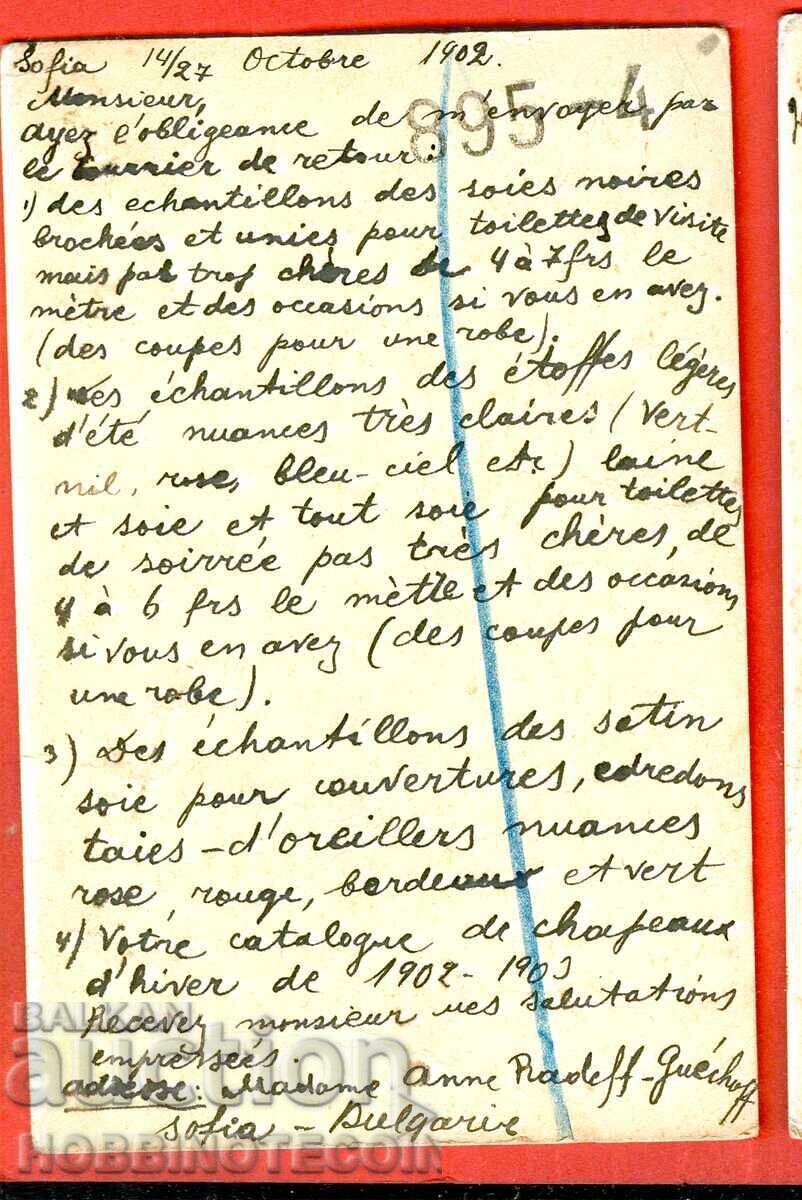 Sofia 14/27 Octobre 1902.
Monsieur,
895-4
ayez l'obligeance de m'envoyer par
le courrier de retour:
1) des echantillons des soies noires
brochées et unies pour toilettes de visite
mais pas trop chères de 4 à 7 frs le
mètre et des occasions si vous en avez.
(des coupes pour une robe).
2) Des échantillons des étoffes légères
d'été nuances très claires (vert-
nil, rose, bleu-ciel etc) laine
et soie et tout soie pour toilettes
de soirrée pas très chères, de
4 à 6 frs le mètre et des occasions
si vous en avez (des coupes pour
une robe).
3) Des échantillons des satin
soie pour couvertures, edredons
taies-d'oreillers nuances
rose, rouge, bordeaux et vert
4) Votre catalogue de chapeaux
d'hiver de 1902-1903
Recevez monsieur mes salutations
empressées.
adresse: Madame Anne Radeff-Guéchoff
Sofia - Bulgarie
BALKAN
auction
HOBBINOTECOIN